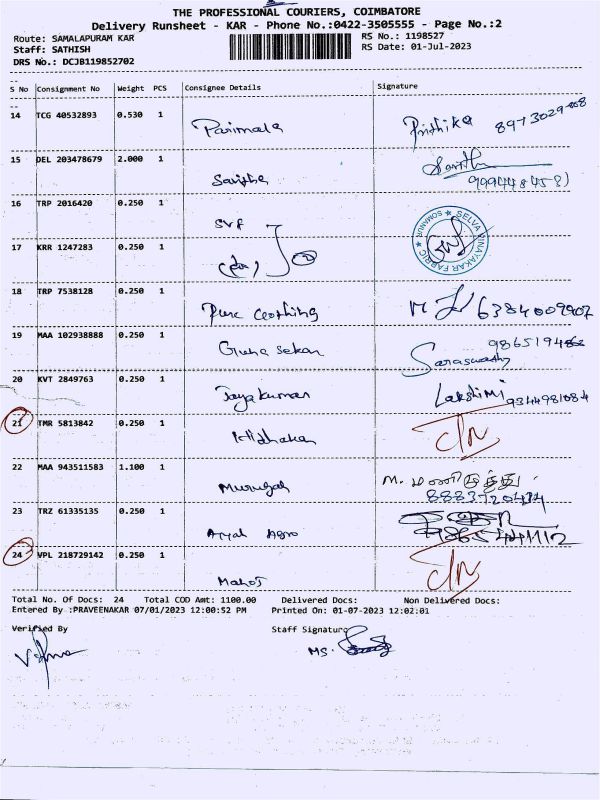 THE PROFESSIONAL COURIERS, COIMBATORE
Delivery Runsheet - KAR - Phone No.:0422-3505555 - Page No.:2
Route: SAMALAPURAM KAR
RS No.: 1198527
Staff: SATHISH
RS Date: 01-Jul-2023
DRS No.: DCJB119852702
S No Consignment No Weight PCS Consignee Details Signature
14 TCG 40532893 0.530 1 Parimala Prithika
15 DEL 203478679 2.000 1 Savitha
16 TRP 2016420 0.250 1 SVF
SELVA VINAYAKAR FABRIC SOMANUR
17 KRR 1247283 0.250 1
18 TRP 7538128 0.250 1 Pure Clothing 6384009907
19 MAA 102938888 0.250 1 Guna Sekar Saraswathy
20 KVT 2849763 0.250 1 Jayakumar Lakshimi 9344981084
21 TMR 5813842 0.250 1
22 MAA 943511583 1.100 1 Murugah M. மணிமுத்து
8883720474
23 TRZ 61335135 0.250 1 Agro
24 VPL 218729142 0.250 1 Manoj
Total No. Of Docs: 24 Total COD Amt: 1100.00 Delivered Docs: Non Delivered Docs:
Entered By :PRAVEENAKAR 07/01/2023 12:00:52 PM Printed On: 01-07-2023 12:02:01
Verified By Staff Signature
MS.